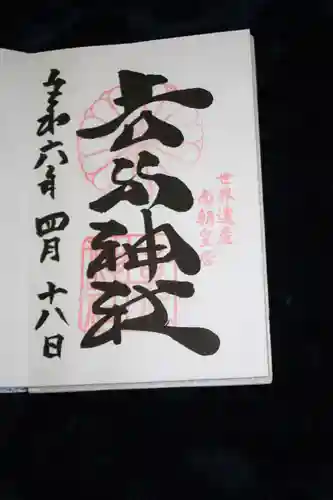 世界遺産
南朝皇居
吉水神社
令和六年 四月 十八日